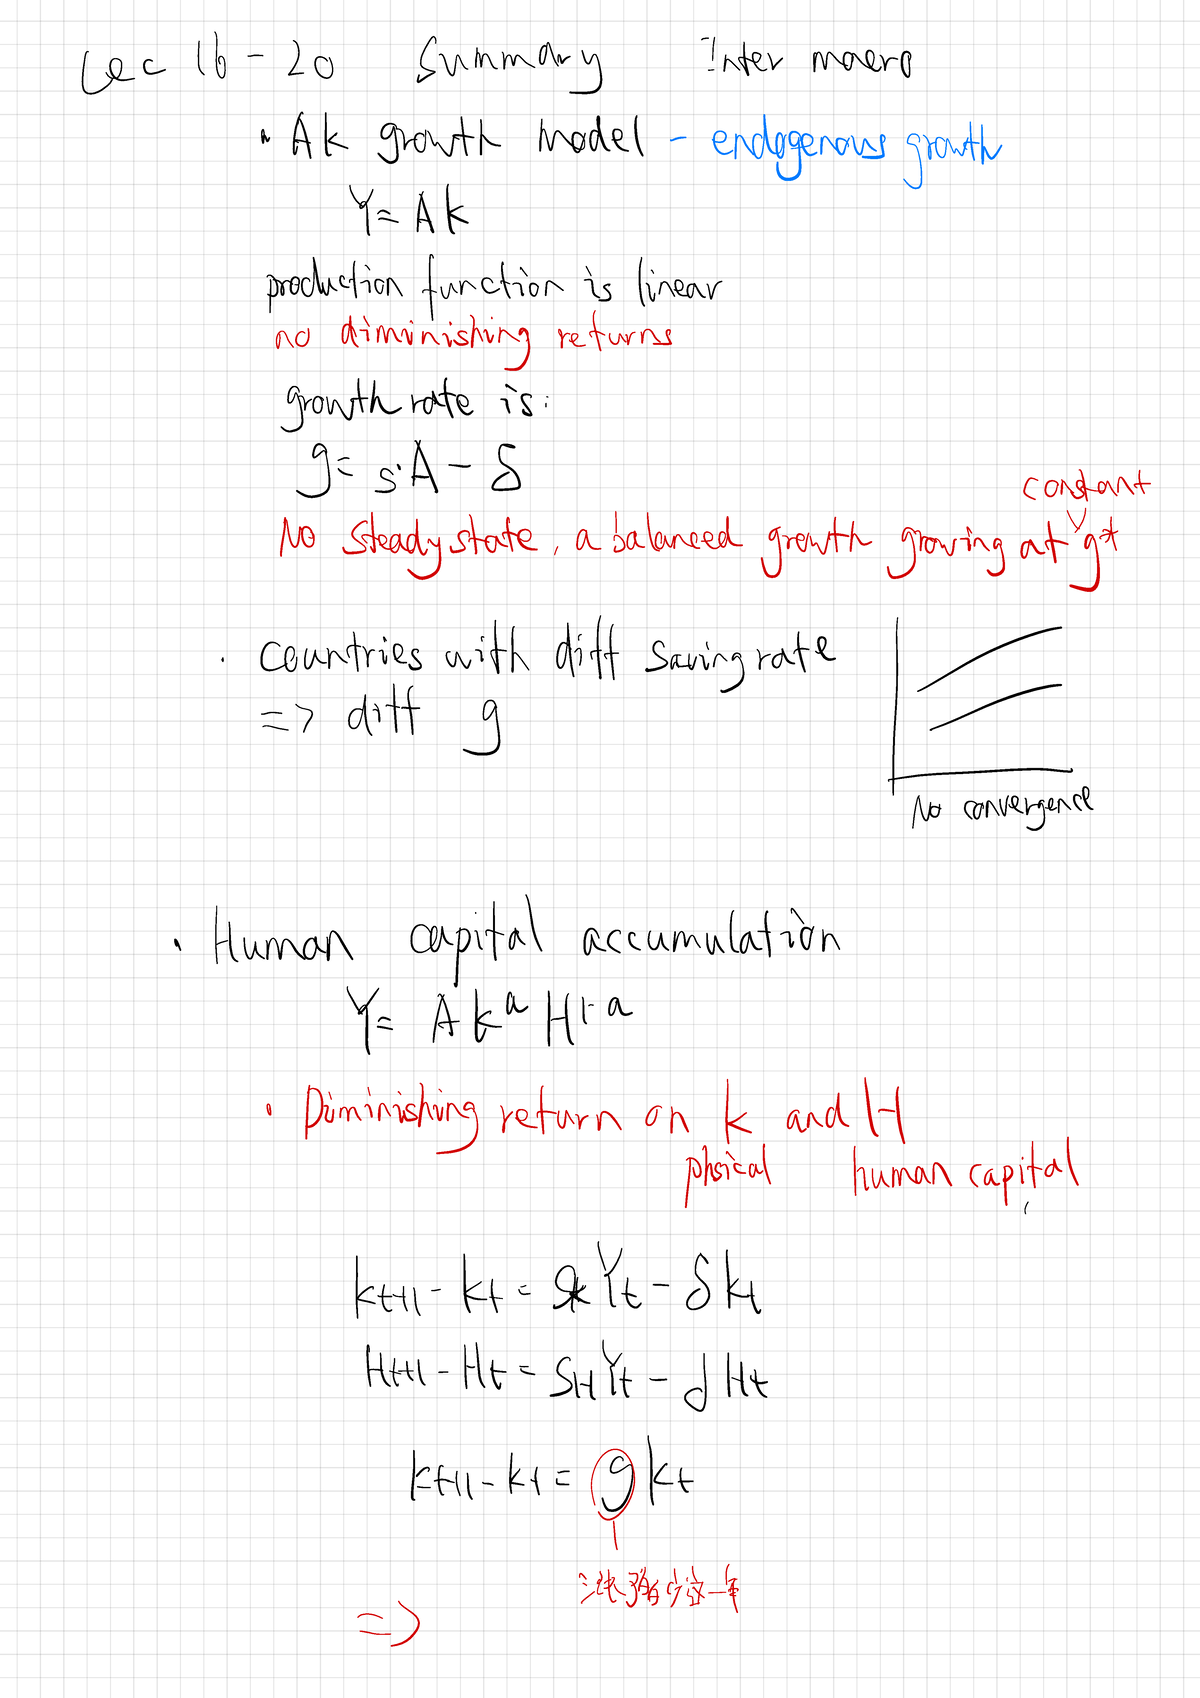 Lec 16-20 Summary Inter macro
· Ak growth model - endogenous growth
Y= Ak
production function is linear
no diminishing returns
growth rate is:
g= s·A - δ
constant
No steady state, a balanced growth growing at g*
· countries with diff saving rate
=> diff g
No convergence
· Human capital accumulation
Y= A k^a H^1-a
· Diminishing return on k and H
phsical human capital
kt+1 - kt = sk Yt - δ kt
Ht+1 - Ht = sH Yt - d Ht
kt+1 - kt = g kt
=>